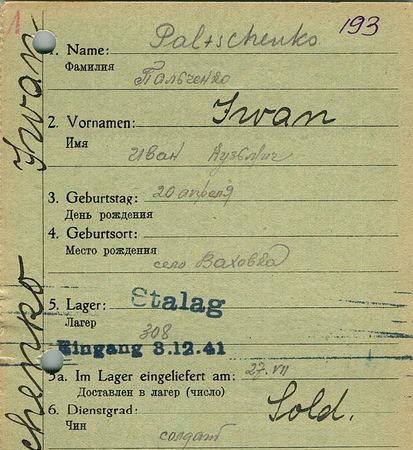 1
193
1. Name: Paltschenko
Фамилия
Пальченко
2. Vornamen: Iwan
Имя
Иван Кузьмич
3. Geburtstag: 20 апреля
День рождения
4. Geburtsort:
Место рождения
село Ваховка
5. Lager: Stalag
Лагер
308
Eingang 3.12.41
5a. Im Lager eingeliefert am: 27.VII
Доставлен в лагер (число)
6. Dienstgrad: Sold.
Чин
солдат
chenko Iwan